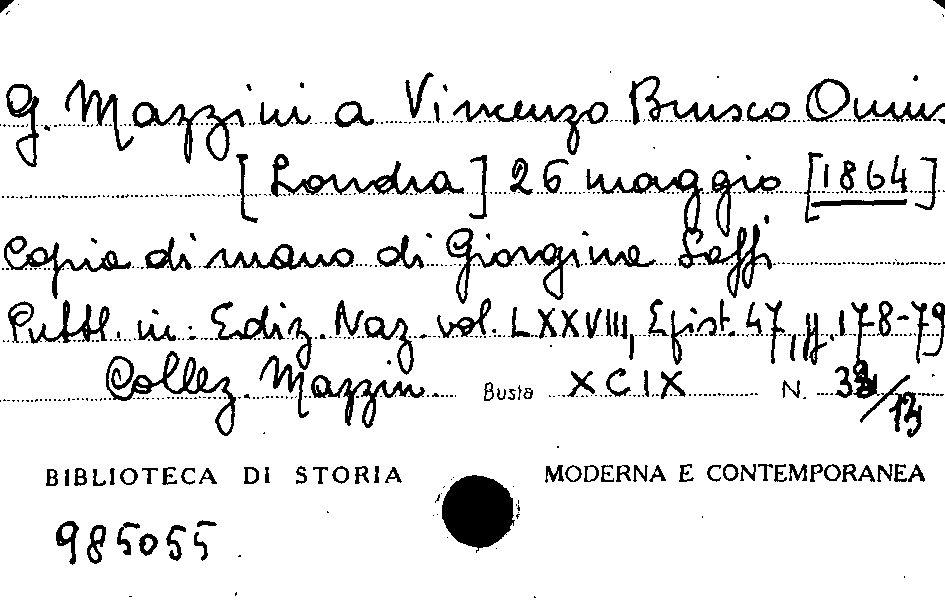 G. Mazzini a Vincenzo Brusco Onnis
[Londra] 26 maggio [1864]
Copia di mano di Giorgina Saffi
Pubbl. in: Ediz. Naz. vol. LXXVIII, Epist. 47, pp. 178-79
Collez. Mazzin. Busta XCIX N. /13
BIBLIOTECA DI STORIA MODERNA E CONTEMPORANEA
985055